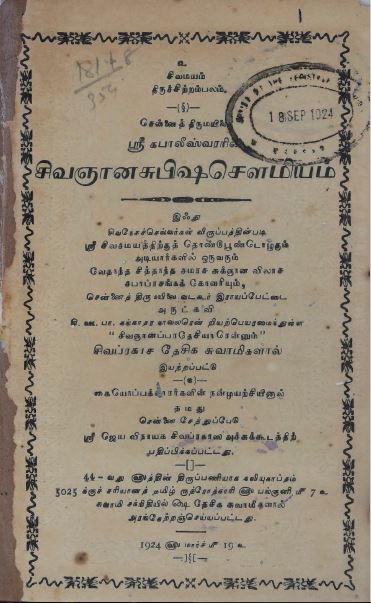 உ
சிவமயம்
திருச்சிற்றம்பலம்.
—(§)—
சென்னைத் திருமயிலை
ஸ்ரீ கபாலீஸ்வரரின்
சிவஞானசுபிஷசௌமியம்
இஃது
சிவநேசச்செல்வர்கள் விருப்பத்தின்படி
ஸ்ரீ சிவசமயத்திற்குத் தொண்டுபூண்டொழுகும்
அடியார்களில் ஒருவரும்
வேதாந்த சித்தாந்த சமரச சுக்ஞான விலாச
சபாப்ரசங்கக் கோவரியும்,
சென்னைத் திருமயிலை வடகூர் இராயப்பேட்டை
அருட்கவி
கங்காதர நாவலரின் றியற்பெயரமைந்துள்ள
"சிவஞானப்பாதேசியாரென்னும்"
சிவப்ரகாச தேசிக சுவாமிகளால்
இயற்றப்பட்டு
கையொப்பக்காரர்களின் நன்முயற்சியினால்
நமது
சென்னை சேத்துப்பேடு
ஸ்ரீ ஜெய விநாயக சிவப்ரகாஸ அச்சுக்கூடத்திற்
பதிப்பிக்கப்பட்டது.
—[]—
௪௪-வது ஹத்தின் திருப்பணியாக கலியுகாப்தம்
5025 க்குச் சரியானத் தமிழ் ருத்ரோத்காரி ஹ பங்குனி மீ 7 உ
சுவாமி சந்நிதியில் ௸ தேசிக சுவாமிகளால்
அரங்கேற்றஞ்செய்யப்பட்டது.
1924 ஹ மார்ச் மீ 19 உ
18 SEP 1924